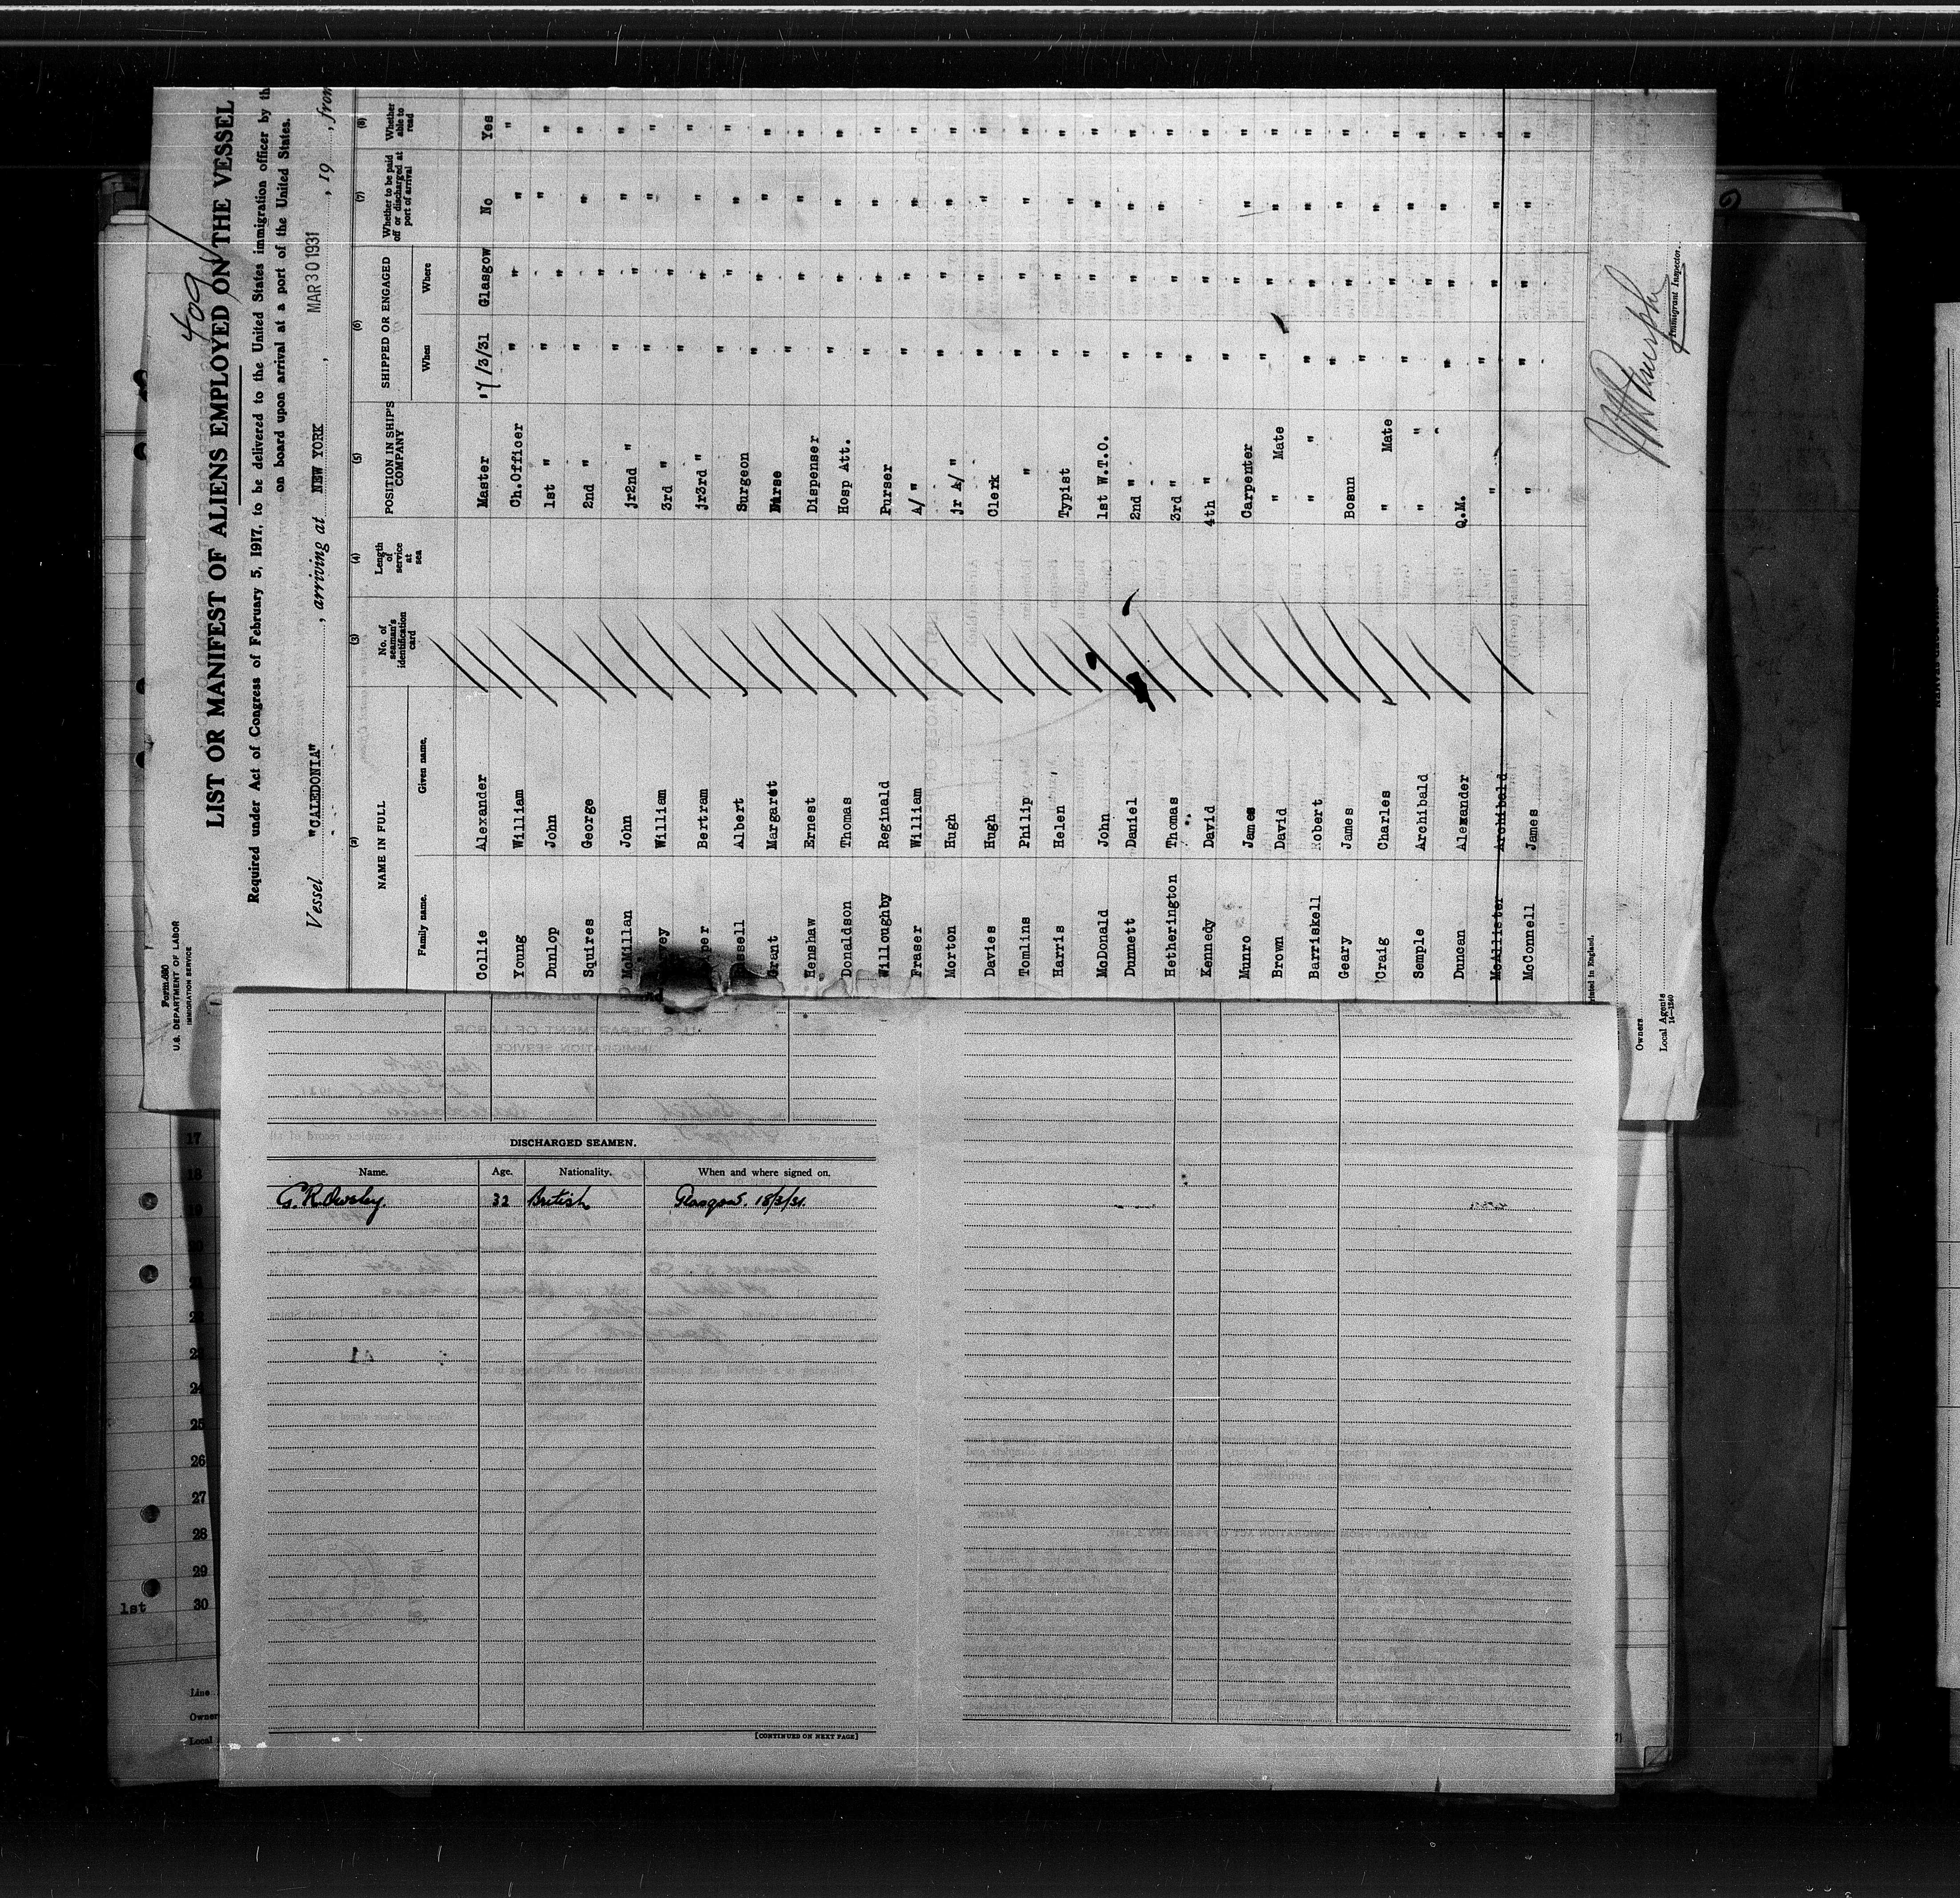 Form 680
U.S. DEPARTMENT OF LABOR
IMMIGRATION SERVICE
409
LIST OR MANIFEST OF ALIENS EMPLOYED ON THE VESSEL
Required under Act of Congress of February 5, 1917, to be delivered to the United States immigration officer by th
on board upon arrival at a port of the United States.
Vessel "CALEDONIA", arriving at NEW YORK, MAR 30 1931, 19 , from
(2) NAME IN FULL (3) No. of seaman's identification card (4) Length of service at sea (5) POSITION IN SHIP'S COMPANY (6) SHIPPED OR ENGAGED (7) Whether to be paid off or discharged at port of arrival (8) Whether able to read
Family name. Given name. When Where
Collie Alexander Master 17/3/31 Glasgow No Yes
Young William Ch.Officer " " " "
Dunlop John 1st " " " " "
Squires George 2nd " " " " "
McMillan John jr2nd " " " " "
vey William 3rd " " " " "
per Bertram jr3rd " " " " "
Albert Surgeon " " " "
Grant Margaret Nurse " " " "
Henshaw Ernest Dispenser " " " "
Donaldson Thomas Hosp Att. " " " "
Willoughby Reginald Purser " " " "
Fraser William A/ " " " " "
Morton Hugh jr A/ " " " " "
Davies Hugh Clerk " " " "
Tomlins Philip " " " " "
Harris Helen Typist " " " "
McDonald John 1st W.T.O. " " " "
Dunnett Daniel 2nd " " " " "
Hetherington Thomas 3rd " " " " "
Kennedy David 4th " " " "
Munro James Carpenter " " " "
Brown David " Mate " " " "
Barriskell Robert " " " " " "
Geary James Bosun " " " "
Craig Charles " Mate " " " "
Semple Archibald " " " " " "
Duncan Alexander Q.M. " " " "
McAllister Archibald " " " " "
McConnell James " " " " "
Printed in England.
Owners
Local Agents
14—1240
Immigrant Inspector.
DISCHARGED SEAMEN.
Name. Age. Nationality. When and where signed on.
32 British Glasgow. 18/3/31.
[CONTINUED ON NEXT PAGE]
17
18
19
20
21
22
23
24
25
26
27
28
29
1st 30
Line
Owner
Local